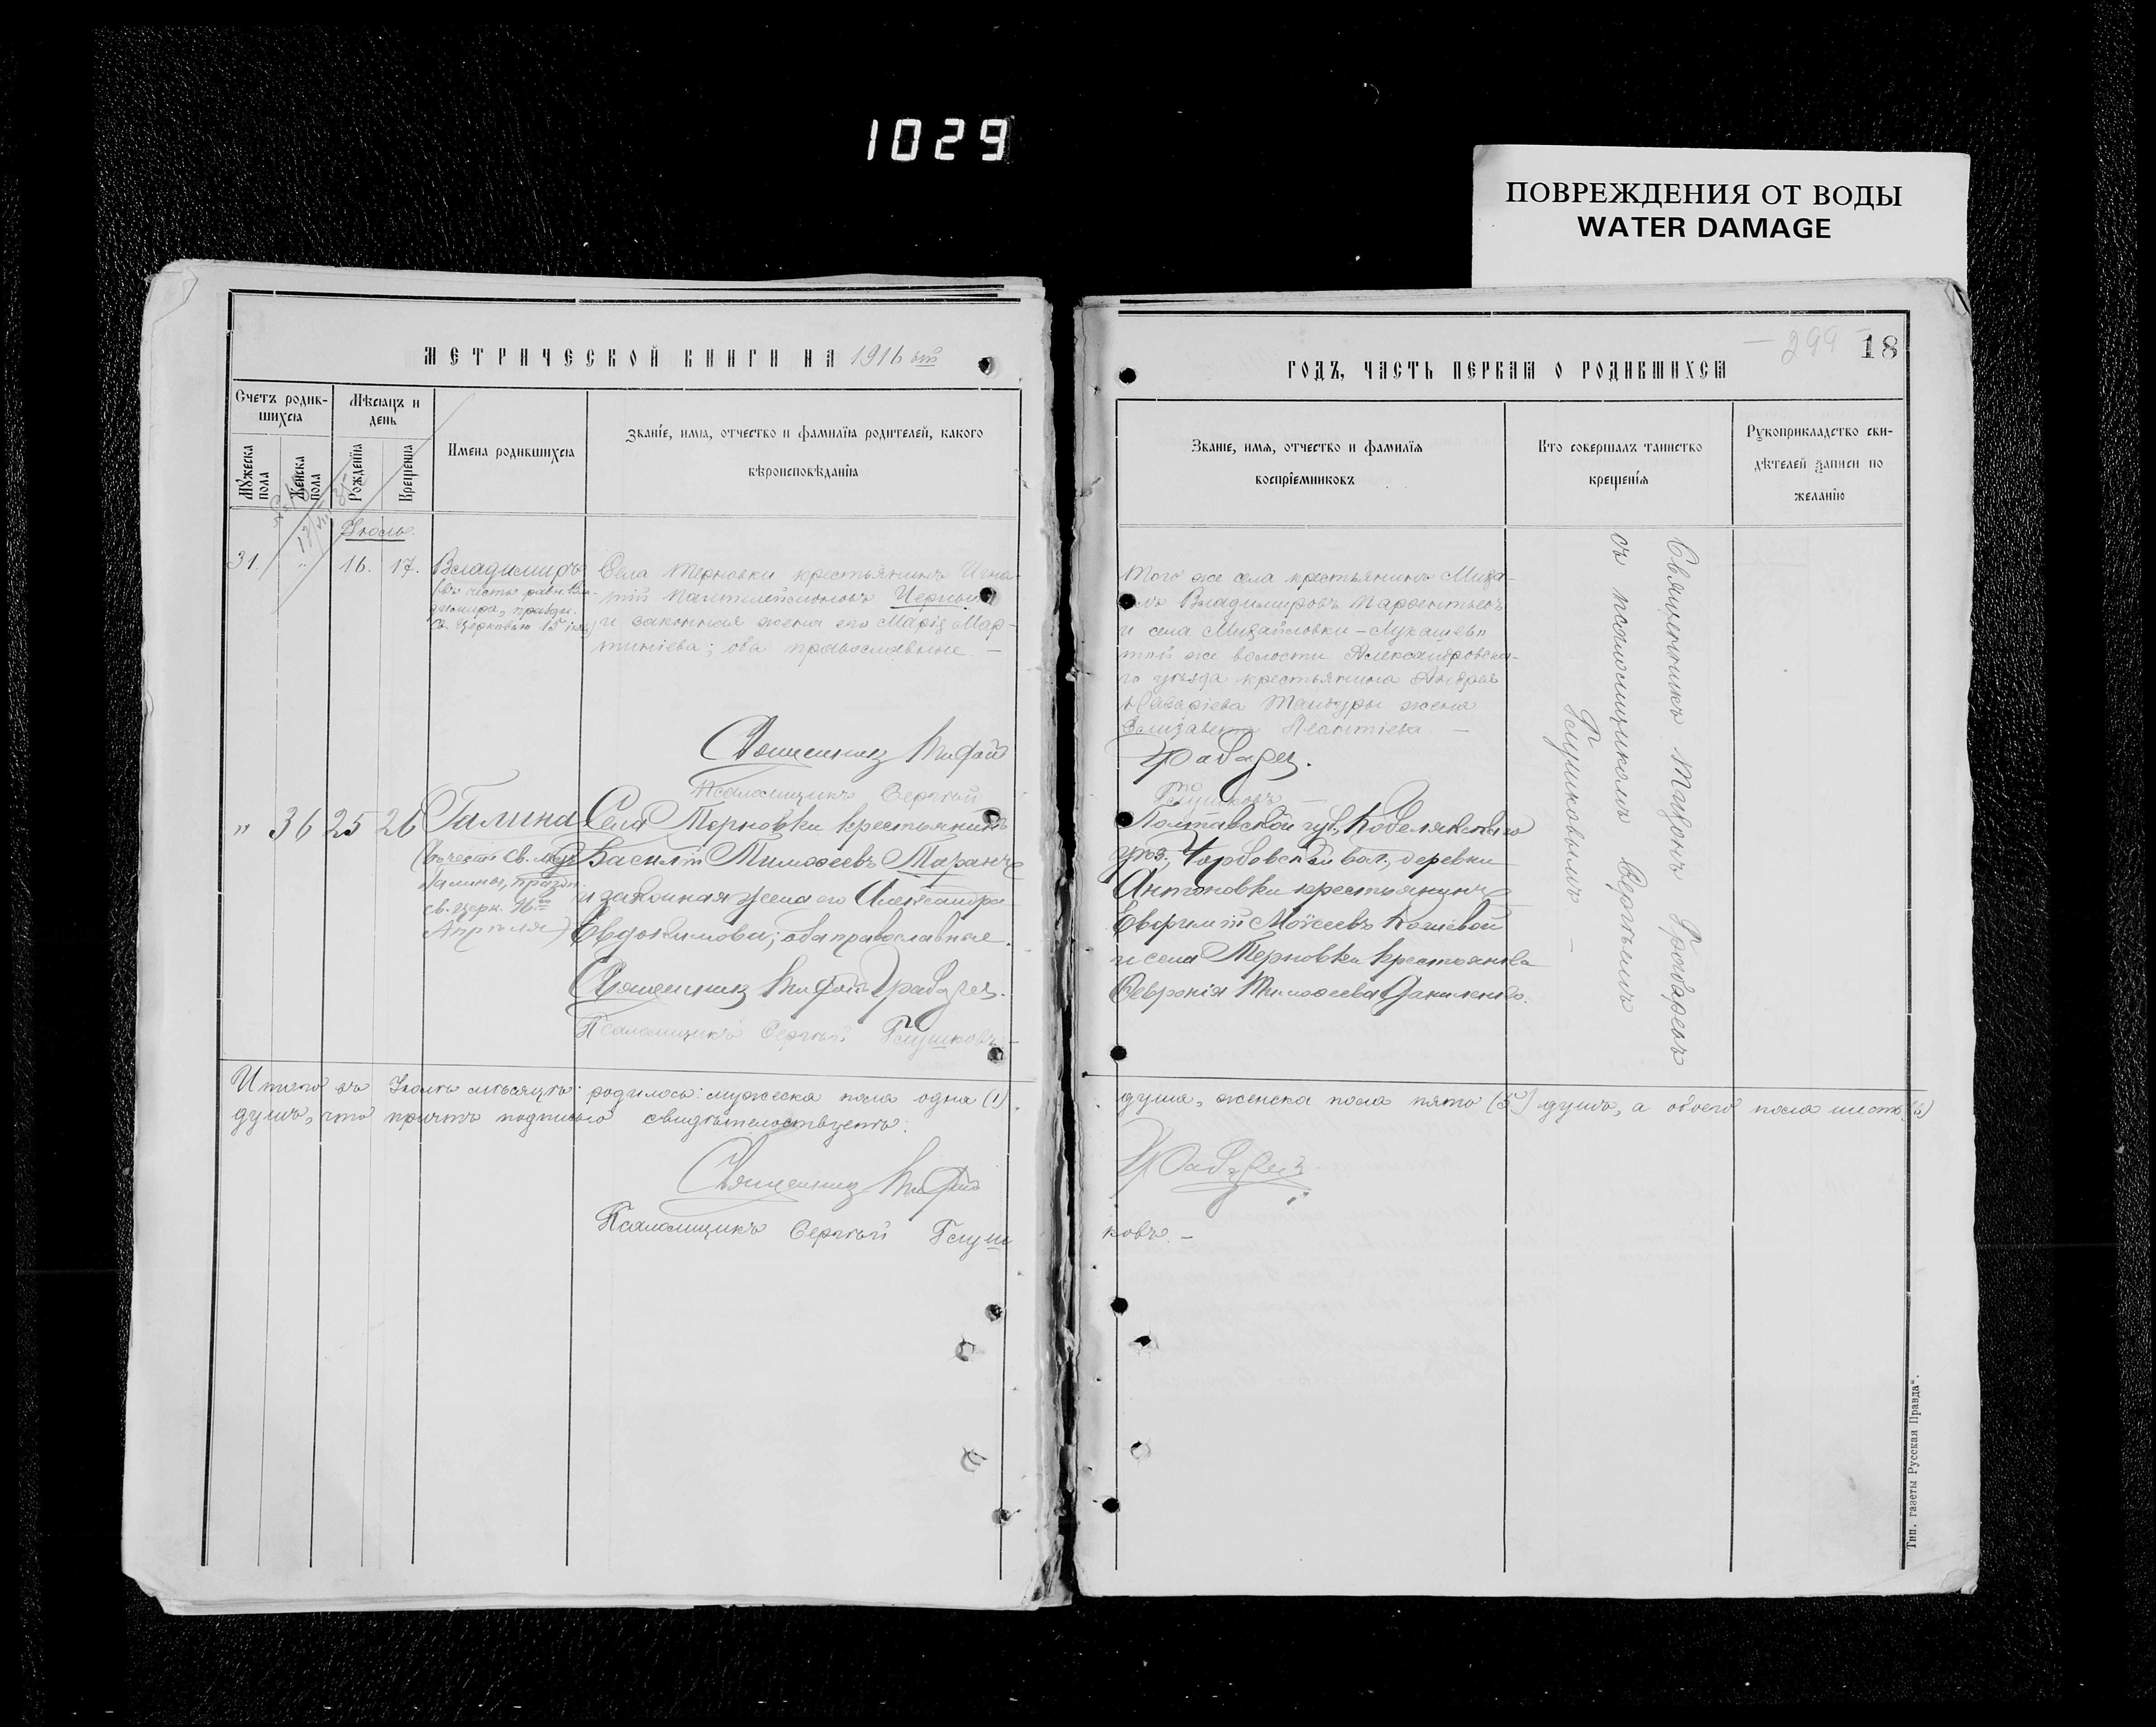 1029
ПОВРЕЖДЕНИЯ ОТ ВОДЫ
WATER DAMAGE
МЕТРИЧЕСКОЙ КНИГИ НА 1916 ый
Счетъ родив-
шихся
Мѣсяцъ и
день
Мужеска
пола
Женска
пола
Рожденія
Крещенія
Имена родившихся
Званіе, имя, отчество и фамилія родителей, какого
вѣроисповѣданія
Іюль.
31. " 16. 17.
Владиміръ
(въ честь равн. Вла-
диміра, праздн.
св. Церковью 15 іюля)
Села Терновки крестьянинъ Игна-
тій Пантелеймоновъ Черный
и законная жена его Марія Мар-
тиніева; оба православные. —
Священникъ
Псаломщикъ Сергѣй
" 36 25 26
Галина
(въ честь св. муч.
Галины, праздн.
св. церк. 16го
Апрѣля)
Села Терновки крестьянинъ
Василій Тимофеевъ Таранъ
и законная жена его Александра
Евдокимова; оба православные.
Священникъ Грабарев.
Псаломщикъ Сергѣй Глушковъ —
Итого въ Іюлѣ мѣсяцѣ родилось: мужеска пола одна (1)
душъ, что причтъ подписью свидѣтельствуетъ:
Священникъ
Псаломщикъ Сергѣй Глуш
— 299 — 18
ГОДЪ, ЧАСТЬ ПЕРВАЯ О РОДИВШИХСЯ
Званіе, имя, отчество и фамилія
воспріемниковъ
Кто совершалъ таинство
крещенія
Рукоприкладство сви-
дѣтелей записи по
желанію
Того же села крестьянинъ Миха-
илъ Владиміровъ Парфентьевъ
и села Михайловки-Лукашевъ
той же волости Александровска-
го уѣзда крестьянина Андрея
Савартіева жена
Елизавета Леонтіева. —
Грабарев.
Глушковъ —
Полтавской губ., Кобелякскаго
уѣз., вол., деревни
Антоновки крестьянинъ
Евфимій Моѵсеевъ Кошевой
и села Терновки крестьянка
Февронія Тимофеева Даниленко.
Священникъ Грабаревъ
съ псаломщикомъ Сергѣемъ
Глушковымъ —
душа, женска пола пять (5) душъ, а обоего пола шесть (6)
Грабарев
ковъ. —
Тип. газеты Русская Правда".